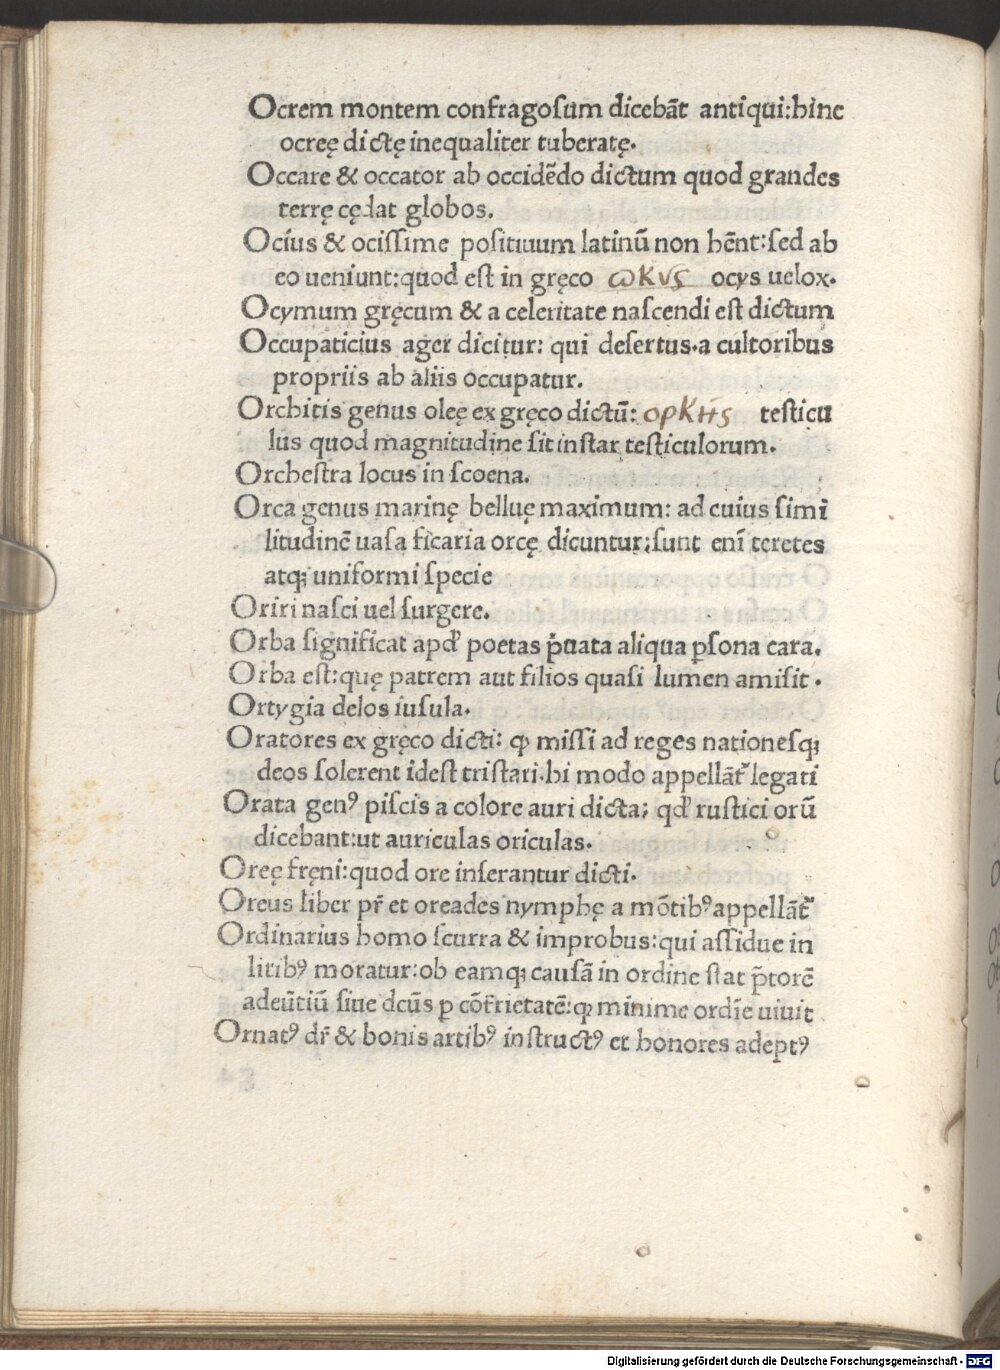 Ocrem montem confragoſum dicebāt antiqui:hinc
ocreę dictę inequaliter tuberatę.
Occare & occator ab occidēdo dictum quod grandes
terrę cędat globos.
Ocíus & ociſſime poſitiuum latinū non hēnt:ſed ab
eo ueniunt:quod eſt in gręco ωκυς ocys uelox.
Ocymum gręcum & a celeritate naſcendi eſt dictum
Occupaticius ager dicitur: qui deſertus.a cultoribus
propriis ab aliis occupatur.
Orchitis genus oleę ex gręco dictū: ορκης teſticu
lus quod magnitudine ſit inſtar teſticulorum.
Orcheſtra locus in ſcoena.
Orca genus marinę belluę maximum: ad cuius ſimi
litudinē uaſa ficaria orcę dicuntur;ſunt enī teretes
atq; uniformi ſpecie
Oriri naſci uel ſurgere.
Orba ſignificat apd' poetas p̄uata aliqua ꝑſona cara.
Orba eſt:quę patrem aut filios quaſi lumen amiſit.
Ortygia delos iuſula.
Oratores ex gręco dicti: ꝙ miſſi ad reges nationeſq;
deos ſolerent ideſt triſtari.hi modo appellāt᷑ legati
Orata genꝰ piſcis a colore auri dicta; qd' ruſtici orū
dicebant:ut auriculas oriculas.
Oreę fręni:quod ore inſerantur dicti.
Oreus liber pr̄ et oreades nymphę a mōtibꝰ appellāt᷑
Ordinarius homo ſcurra & improbus:qui aſſidue in
litibꝰ moratur:ob eamq; cauſā in ordine ſtat p̄torē
adeūtiū ſiue dcūs ꝑ cōt̄rietatē:ꝙ minime ordīe uiuit
Ornatꝰ dr̄ & bonis artibꝰ inſtructꝰ et honores adeptꝰ
Digitalisierung gefördert durch die Deutsche Forschungsgemeinschaft - DFG